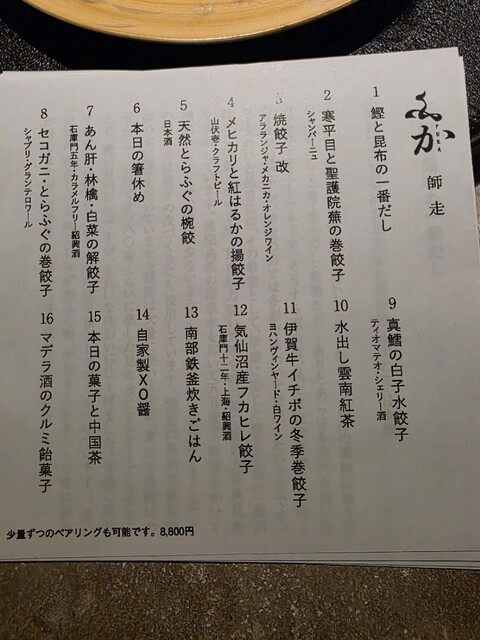 ふか
FUKA
師走
1 鰹と昆布の一番だし
2 寒平目と聖護院蕪の巻餃子
シャンパーニュ
3 焼餃子 改
アララランジャ・メカニカ・オレンジワイン
4 メヒカリと紅はるかの揚餃子
山伏壱・クラフトビール
5 天然とらふぐの椀餃
日本酒
6 本日の箸休め
7 あん肝・林檎・白菜の解餃子
石庫門五年・カラメルフリー紹興酒
8 セコガニ・とらふぐの巻餃子
シャブリ・グランテロワール
9 真鱈の白子水餃子
ティオマテオ・シェリー酒
10 水出し雲南紅茶
11 伊賀牛イチボの冬季巻餃子
ヨハンヴィンヤード・白ワイン
12 気仙沼産フカヒレ餃子
石庫門十二年・上海・紹興酒
13 南部鉄釜炊きごはん
14 自家製XO醤
15 本日の菓子と中国茶
16 マデラ酒のクルミ飴菓子
少量ずつのペアリングも可能です。8,800円